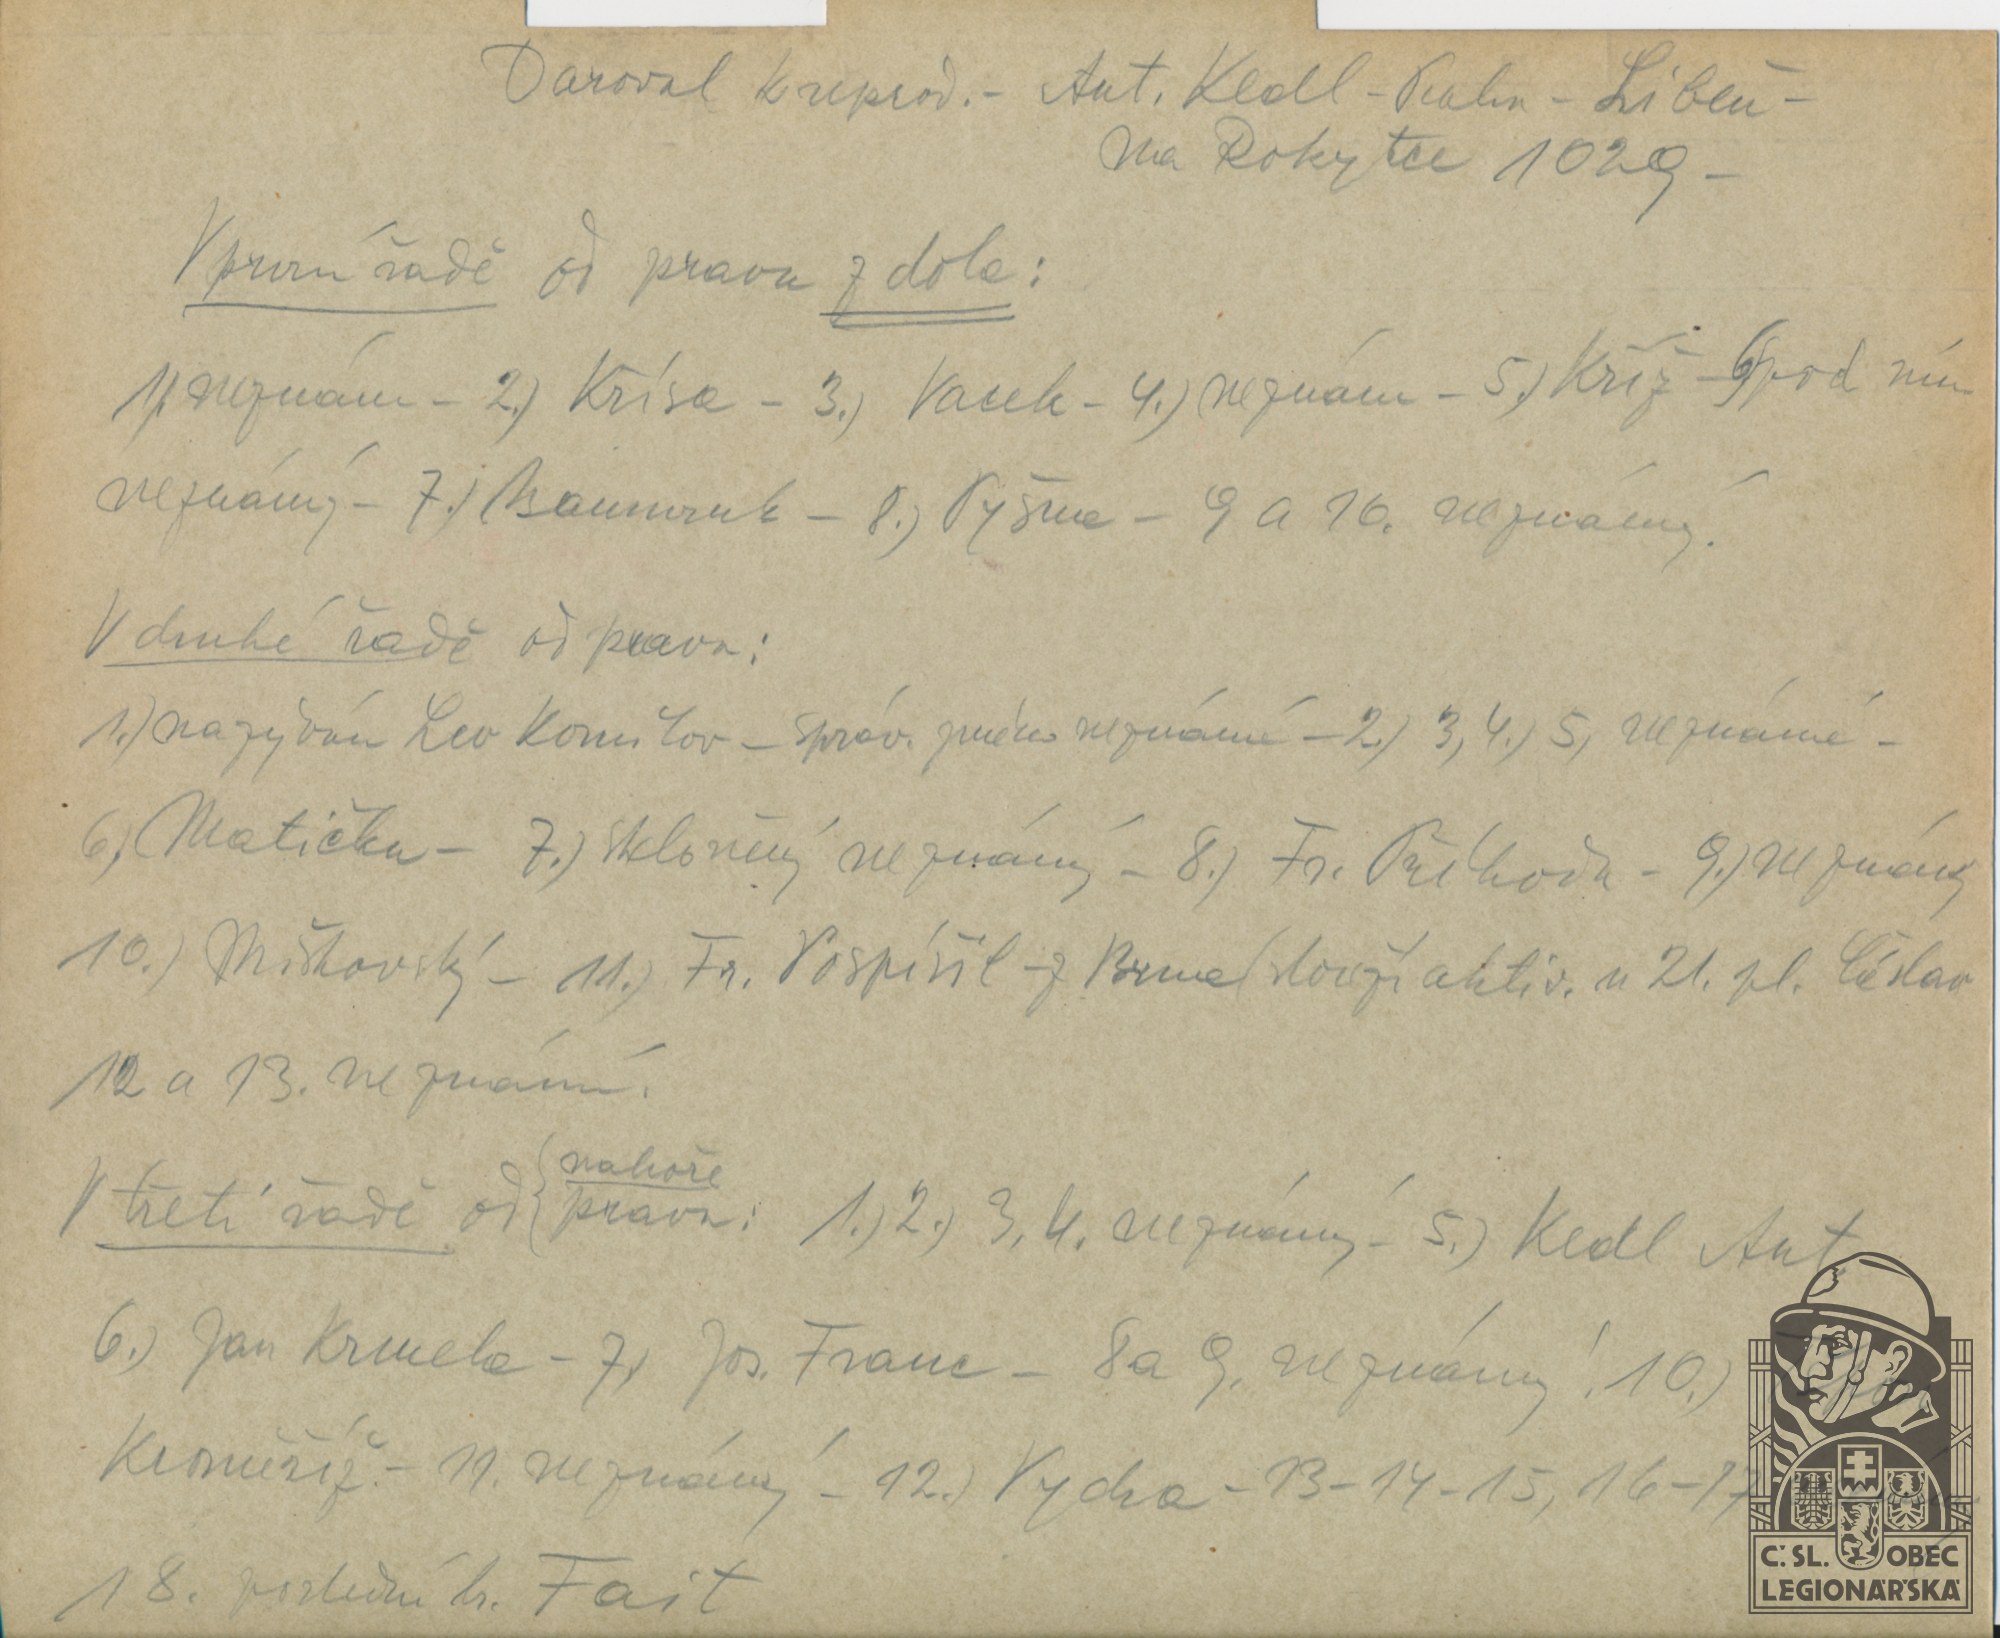 Daroval k reprod. - Ant. Kedl - Praha - Libeň -
na Rokytce 1029 -
V první řadě od prava z dola:
1) neznám - 2.) Křísa - 3.) Vacek - 4.) neznám - 5.) Kříž - 6) pod ním
neznámý - 7.) Baumruk - 8.) Vyšme - 9 a 10. neznámý.
V druhé řadě od prava:
1.) nazýván Lev Kornilov - správ. jméno neznámé - 2.) 3, 4.) 5, neznámé -
6, Matička - 7.) skloněný neznámý - 8.) Fr. Příhoda - 9.) neznámý
10.) Miškovský - 11.) Fr. Pospíšil - z Brna (slouží aktiv. u 21. pl. Čáslav
12 a 13. neznámí.
V třetí řadě od { nahoře
prava: 1.) 2.) 3, 4. neznámý - 5.) Kedl Ant
6.) Jan Krmela - 7) Jos. Franc - 8 a 9. neznámý! 10.)
Kroměříž. - 11. neznámý - 12.) Vydra - 13 - 14 - 15, 16 - 17
18. poslední br. Fait
Č. SL. OBEC
LEGIONÁŘSKÁ